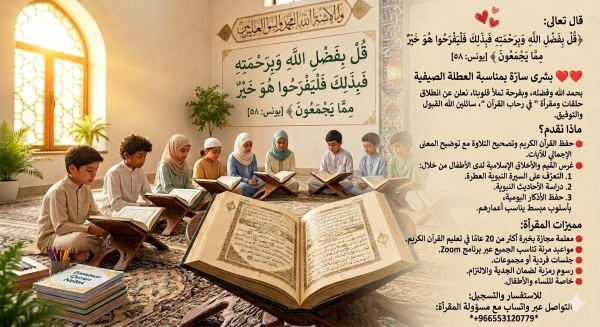 قُلْ بِفَضْلِ اللَّهِ وَبِرَحْمَتِهِ
فَبِذَٰلِكَ فَلْيَفْرَحُوا هُوَ خَيْرٌ
مِمَّا يَجْمَعُونَ ﴾ [يونس: ٥٨]
قال تعالى:
﴿قُلْ بِفَضْلِ اللَّهِ وَبِرَحْمَتِهِ فَبِذَلِكَ فَلْيَفْرَحُوا هُوَ خَيْرٌ
مِمَّا يَجْمَعُونَ ﴾ [يونس: ٥٨]
❤️❤️ بشرى سارّة بمناسبة العطلة الصيفية
بحمد الله وفضله، وبفرحة تملأ قلوبنا، نعلن عن انطلاق
حلقات ومقرأة " في رحاب القرآن "، سائلين الله القبول
والتوفيق.
ماذا نقدم؟
حفظ القرآن الكريم وتصحيح التلاوة مع توضيح المعنى
الإجمالي للآيات.
غرس القيم والأخلاق الإسلامية لدى الأطفال من خلال:
1. التعرّف على السيرة النبوية العطرة.
2. دراسة الأحاديث النبوية.
3. حفظ الأذكار اليومية،
بأسلوب مبسط يناسب أعمارهم.
مميزات المقرأة:
معلمة مجازة بخبرة أكثر من 20 عامًا في تعليم القرآن الكريم.
مواعيد مرنة تناسب الجميع عبر برنامج Zoom.
جلسات فردية أو مجموعات.
رسوم رمزية لضمان الجدية والالتزام.
خاصة للنساء والأطفال.
للاستفسار والتسجيل:
التواصل عبر واتساب مع مسؤولة المقرأة:
*+966553120779*